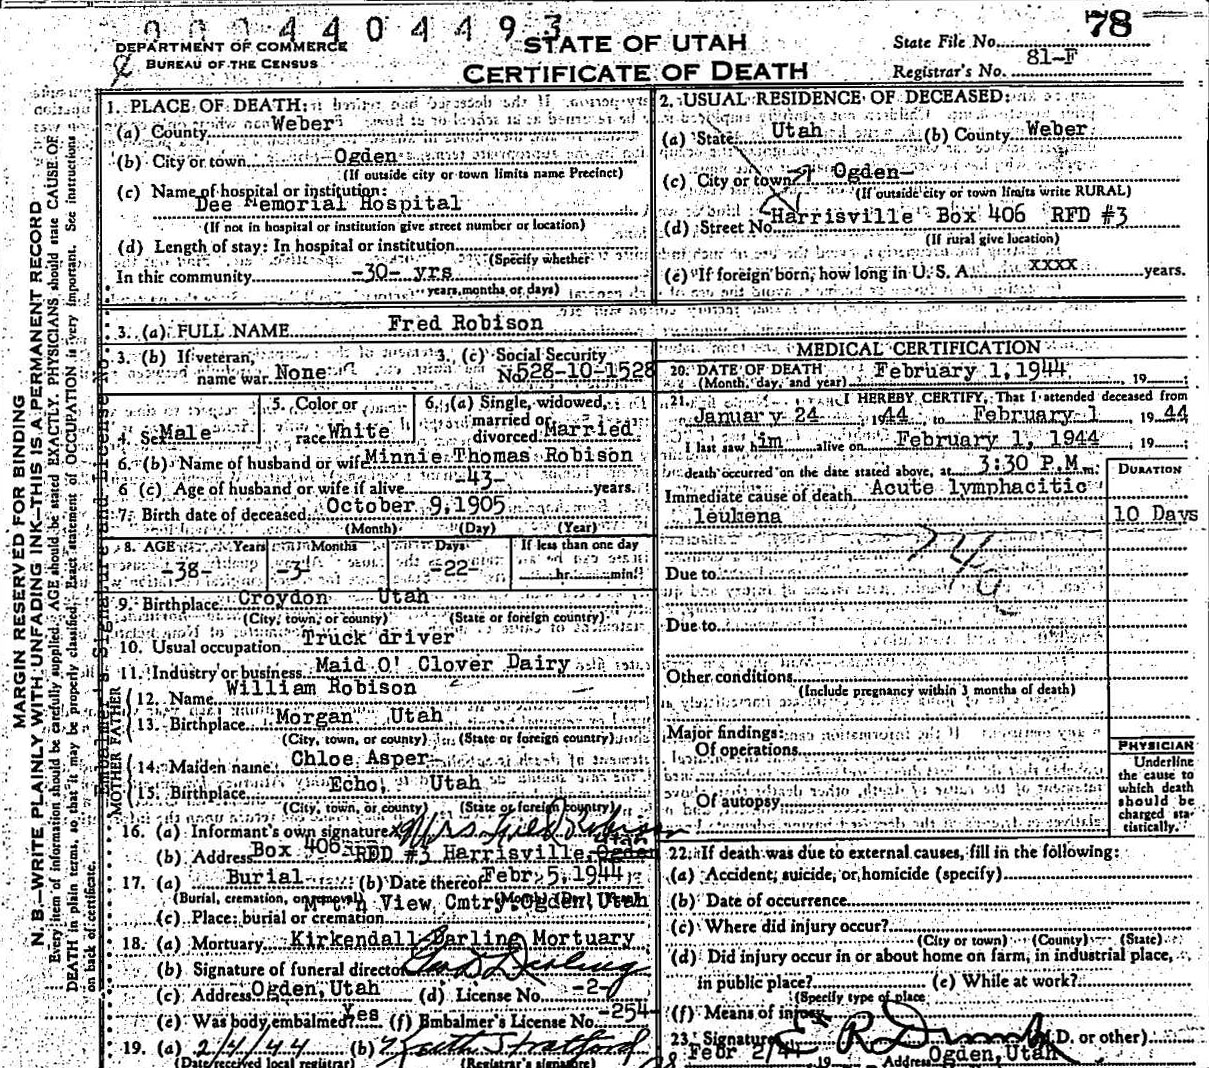 000440449 3
78
DEPARTMENT OF COMMERCE
BUREAU OF THE CENSUS
STATE OF UTAH
CERTIFICATE OF DEATH
State File No.
Registrar's No. 81-F
MARGIN RESERVED FOR BINDING
N. B.—WRITE PLAINLY WITH UNFADING INK—THIS IS A PERMANENT RECORD
Every item of information should be carefully supplied. AGE should be stated EXACTLY. PHYSICIANS should state CAUSE OF
DEATH in plain terms, so that it may be properly classified. Exact statement of OCCUPATION is very important. See instructions
on back of certificate.
Embalmer's Signature and License No.
1. PLACE OF DEATH:
(a) County Weber
(b) City or town Ogden
(If outside city or town limits name Precinct)
(c) Name of hospital or institution:
Dee Memorial Hospital
(If not in hospital or institution give street number or location)
(d) Length of stay: In hospital or institution
(Specify whether
In this community -30- yrs
years, months or days)
2. USUAL RESIDENCE OF DECEASED:
(a) State Utah (b) County Weber
(c) City or town Ogden
(If outside city or town limits write RURAL)
(d) Street No. Harrisville Box 406 RFD #3
(If rural give location)
(e) If foreign born, how long in U. S. A. xxxx years.
3. (a) FULL NAME Fred Robison
3. (b) If veteran, name war None
3. (c) Social Security No. 528-10-1528
4. Sex Male
5. Color or race White
6. (a) Single, widowed, married or divorced Married
6. (b) Name of husband or wife Minnie Thomas Robison
6 (c) Age of husband or wife if alive -43- years.
7. Birth date of deceased October 9,1905
(Month) (Day) (Year)
8. AGE Years Months Days If less than one day
-38- -3- -22- hr. min.
9. Birthplace Croydon Utah
(City, town, or county) (State or foreign county)
10. Usual occupation Truck driver
11. Industry or business Maid O' Clover Dairy
FATHER
12. Name William Robison
13. Birthplace Morgan Utah
(City, town, or county) (State or foreign country)
MOTHER
14. Maiden name Chloe Asper
15. Birthplace Echo, Utah
(City, town, or county) (State or foreign country)
16. (a) Informant's own signature x Mrs. Fred Robison
(b) Address Box 406 RFD #3 Harrisville Ogden Utah
17. (a) Burial (b) Date thereof Febr 5,1944
(Burial, cremation, or removal) (Month) (Day) (Year)
(c) Place: burial or cremation Mt'n View Cmtry.Ogden,Utah
18. (a) Mortuary Kirkendall-Darling Mortuary
(b) Signature of funeral director Geo D Darling
(c) Address Ogden,Utah (d) License No. -2-
(e) Was body embalmed? Yes (f) Embalmer's License No. -254-
19. (a) 2/4/44 (b) Stratford
(Date received local registrar) (Registrar's signature)
MEDICAL CERTIFICATION
20. DATE OF DEATH February 1,1944, 19
(Month, day, and year)
21. I HEREBY CERTIFY, That I attended deceased from
January 24 1944, to February 1, 1944
I last saw him alive on February 1, 1944 19 ;
death occurred on the date stated above, at 3:30 P.M. m.
DURATION
Immediate cause of death Acute lymphacitic
leukena 10 Days
74a
Due to
Due to
Other conditions
(Include pregnancy within 3 months of death)
Major findings:
Of operations
Of autopsy
PHYSICIAN
Underline
the cause to
which death
should be
charged sta-
tistically.
22. If death was due to external causes, fill in the following:
(a) Accident, suicide, or homicide (specify)
(b) Date of occurrence
(c) Where did injury occur?
(City or town) (County) (State)
(d) Did injury occur in or about home on farm, in industrial place,
in public place? (e) While at work?
(Specify type of place
(f) Means of injury
23. Signature E R (M.D. or other)
Febr 2/44 19 Address Ogden,Utah